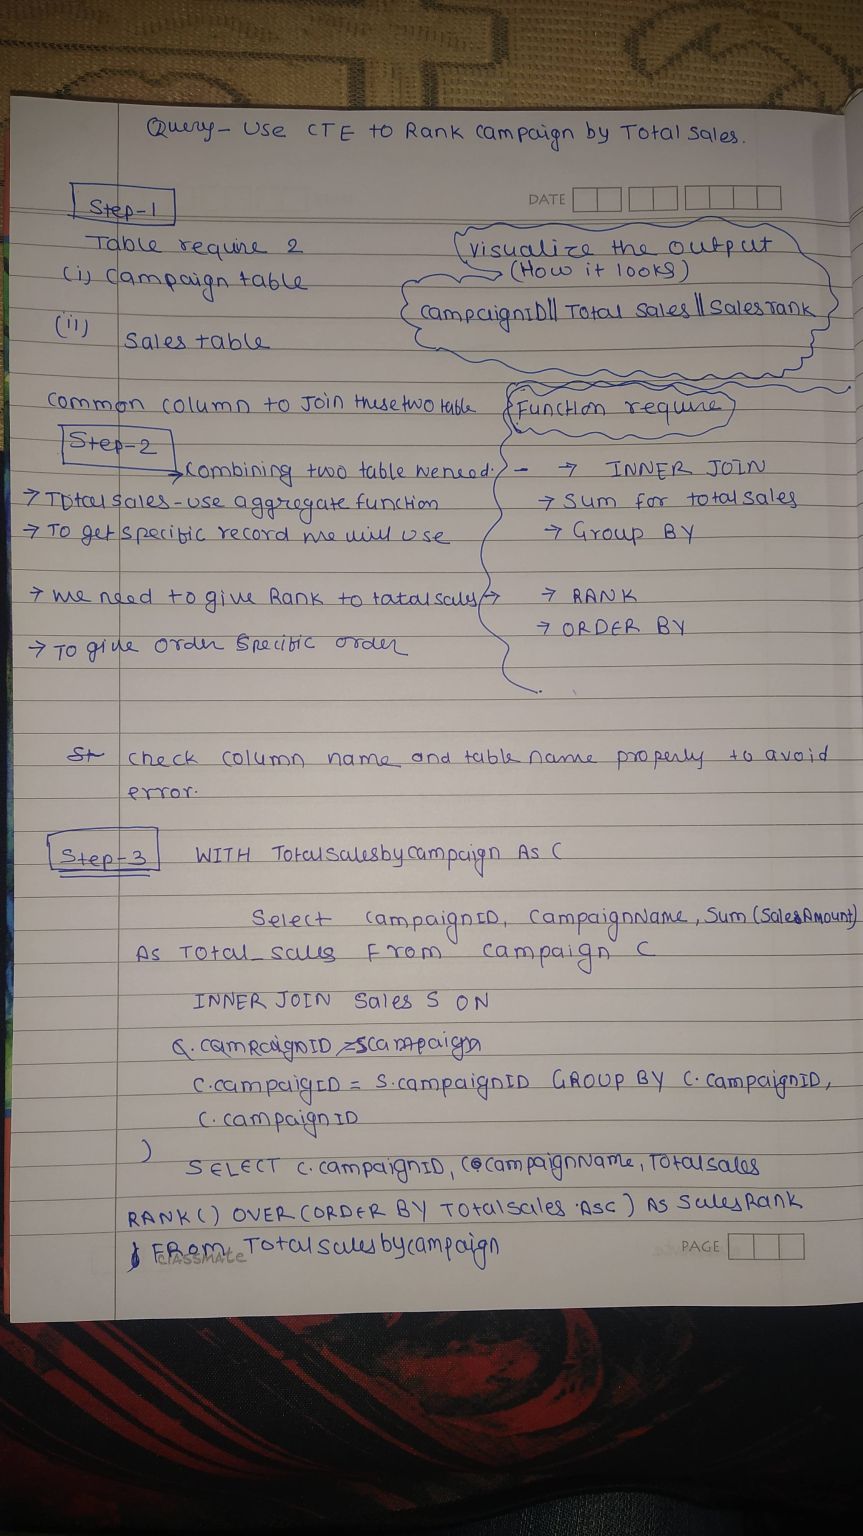 Query - Use CTE to Rank campaign by Total sales.
DATE
Step-1
Table require 2
(i) campaign table
(ii) Sales table
visualize the output
(How it looks)
campaignID || Total sales || Salesrank
common column to Join these two table
Function require
Step-2
→ combining two table we need: -
→ INNER JOIN
→ Total sales - use aggregate function
→ Sum for total sales
→ To get specific record we will use
→ Group BY
→ we need to give Rank to tatal sales →
→ RANK
→ To give order specific order
→ ORDER BY
St check column name and table name properly to avoid
error.
Step-3
WITH Totalsalesbycampaign As (
Select campaignID, CampaignName, Sum (SalesAmount)
As Total_sales From campaign C
INNER JOIN Sales S ON
C.campaignID = S campaign
C.campaigID = S.campaignID GROUP BY C.campaignID,
C.campaignID
)
SELECT C.campaignID, C campaignName, Totalsales
RANK() OVER (ORDER BY Totalsales ASC) As SalesRank
FROM Totalsalesbycampaign
classmate
PAGE